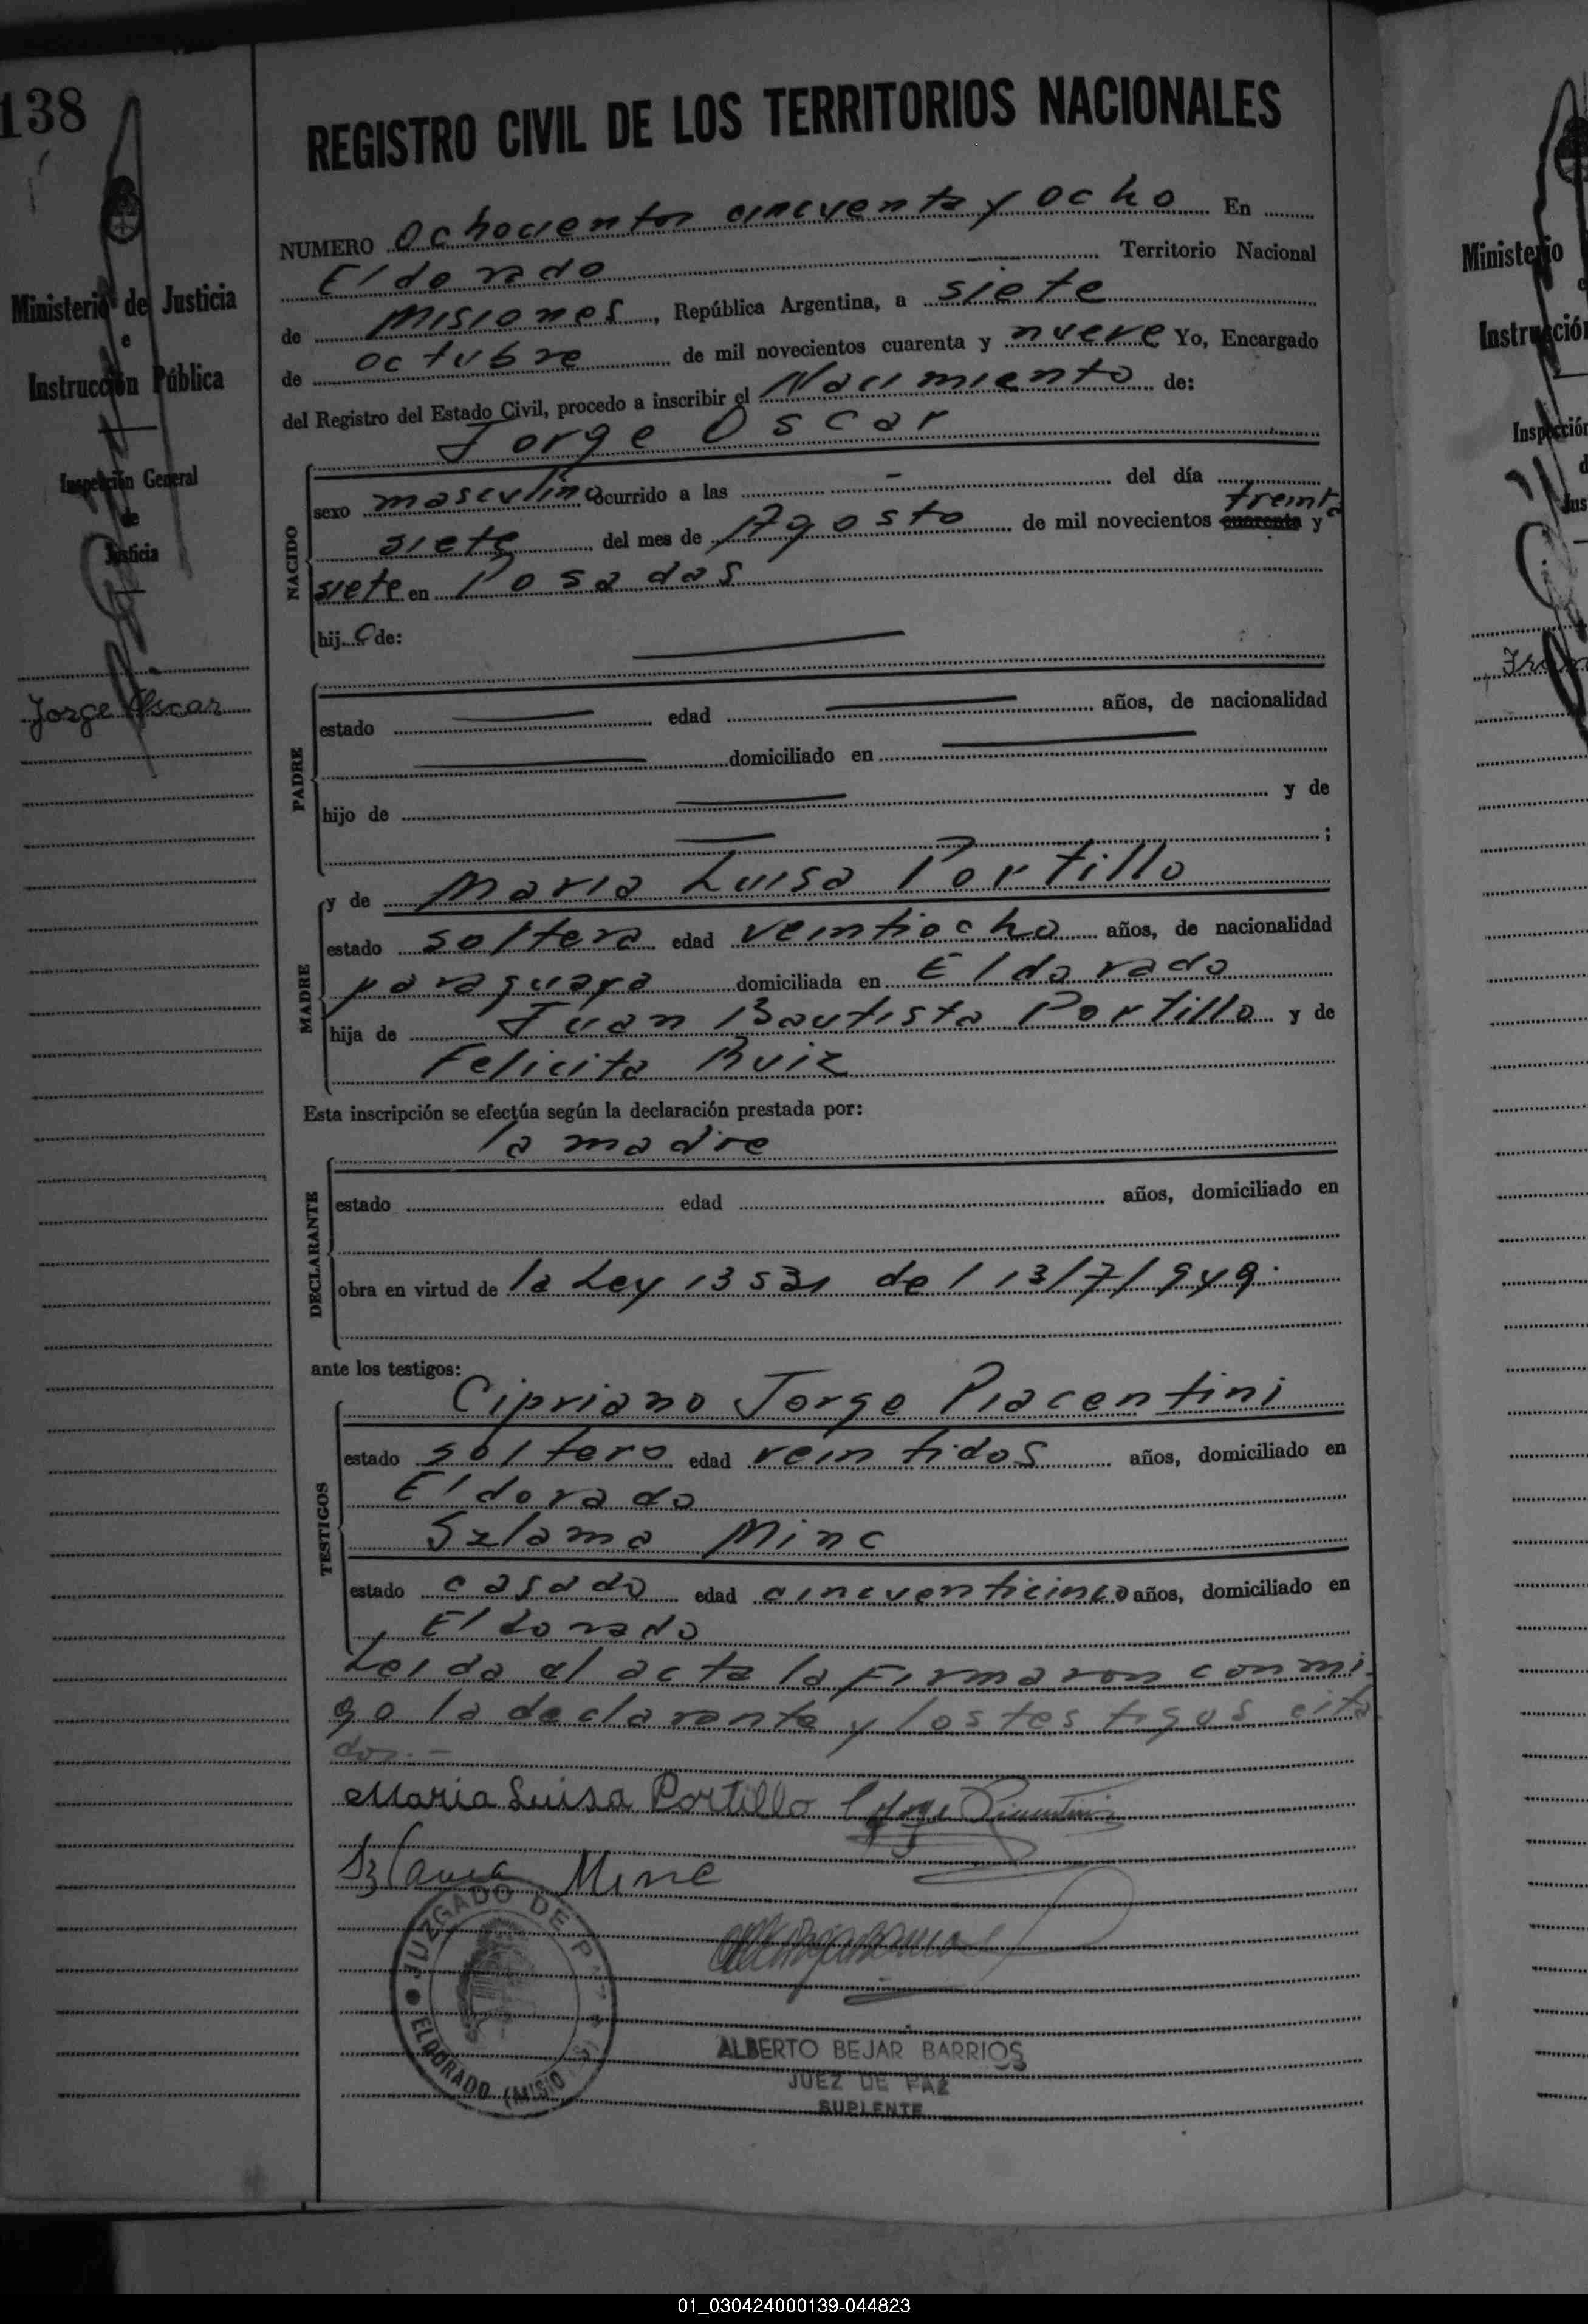 138
Ministerio de Justicia
e
Instrucción Pública
Inspección General
de
Justicia
Jorge Oscar
REGISTRO CIVIL DE LOS TERRITORIOS NACIONALES
NUMERO Ochocientos cincuenta y ocho En
Eldorado Territorio Nacional
de Misiones, República Argentina, a siete
de octubre de mil novecientos cuarenta y nueve Yo, Encargado
del Registro del Estado Civil, procedo a inscribir el Nacimiento de:
Jorge Oscar
NACIDO
sexo masculino ocurrido a las - del día
siete del mes de Agosto de mil novecientos cuarenta treinta y
siete en Posadas
hijo de:
PADRE
estado edad años, de nacionalidad
domiciliado en
hijo de y de
;
MADRE
y de Maria Luisa Portillo
estado soltera edad veintiocho años, de nacionalidad
paraguaya domiciliada en Eldorado
hija de Juan Bautista Portillo y de
Felicita Ruiz
Esta inscripción se efectúa según la declaración prestada por:
la madre
DECLARANTE
estado edad años, domiciliado en
obra en virtud de la Ley 13531 del 13/7/949.
ante los testigos:
TESTIGOS
Cipriano Jorge Piacentini
estado soltero edad veintidos años, domiciliado en
Eldorado
Szlama Minc
estado casado edad cincuenticinco años, domiciliado en
Eldorado
Leida el acta la firmaron conmi-
go la declarante y los testigos cita
dos.-
Maria Luisa Portillo
Szlama Minc
JUZGADO DE PAZ
ELDORADO (MISIONES)
ALBERTO BEJAR BARRIOS
JUEZ DE PAZ
SUPLENTE
Ministerio
Instrucción
Inspección
01_030424000139-044823